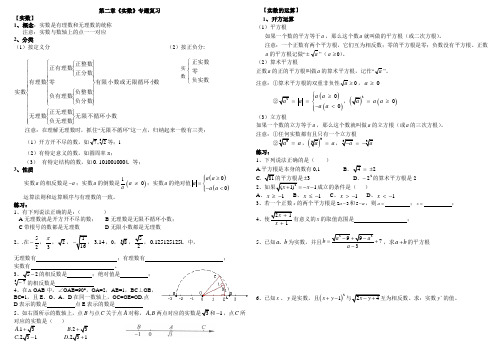 第二章《实数》专题复习
【实数】
1、概念：实数是有理数和无理数的统称
注意：实数与数轴上的点一一对应
2、分类
（1）按正义分
（2）按正负分：
实数
有理数
正有理数
正整数
正分数
零
负有理数
负整数
负分数
有限小数或无限循环小数
无理数
正无理数
负无理数
无限不循环小数
实数
正实数
零
负实数
注意：在理解无理数时，抓住“无限不循环”这一点，归纳起来一般有三类：
（1）开方开不尽的数，如√7,∛2等；1
（2）有特定意义的数，如圆周率π；
（3）有特定结构的数，如0.1010010001…等；
3、性质
实数a的相反数是-a；实数a的倒数是1/a（a≠0）；实数a的绝对值={a(a≥0) -a(a<0)
运算法则和运算顺序与有理数的一致。
练习：
1、有下列说法正确的是：（ ）
A 无理数就是开方开不尽的数； B 无理数是无限不循环小数；
C 带根号的数都是无理数 D 无限小数都是无理数
无理数有 ，有理数有 ；
实数有
3、√5－2的相反数是 ，绝对值是 ；
的相反数是
4、在△OAB中，∠OAB=90°，OA=2，AB=1，BC⊥OB，
BC=1，且E、O、A、D在同一数轴上，OC=OE=OD,点
D表示的数是 点E表示的数是
5、如右图所示的数轴上，点B与点C关于点A对称，A、B两点对应的实数是√3和－1，点C所
对应的实数是（ ）
A.1+√3 B.2+√3
C.2√3-1 D.2√3+1
【实数的运算】
1、开方运算
（1）平方根
如果一个数的平方等于a，那么这个数a就叫做的平方根（或二次方根）。
注意：一个正数有两个平方根，它们互为相反数；零的平方根是零；负数没有平方根，正数
a的平方根记做“±√a”（a≥0）。
（2）算术平方根
正数a的正的平方根叫做a的算术平方根，记作“√a”。
注意：①算术平方根的双重非负性√a≥0，a≥0
②√a² = |a| = {a(a≥0) -a(a<0)，(√a)² = a(a≥0)
（3）立方根
如果一个数的立方等于a，那么这个数就叫做a的立方根（或a的三次方根）。
注意：①任何实数都有且只有一个立方根
②∛a³ = a，(∛a)³ = a，∛-a = -∛a
练习：
1、下列说法正确的是（ ）
A.平方根是本身的数有0,1 B、√4 = ±2
C、√81的平方根是±3 D、-a²的算术平方根是2
2、如果√(x+1)² = -x-1成立的条件是（ ）
A、x ≥ -1 B、x ≤ -1 C、x > -1 D、x < -1
3、若一个正数x的两个平方根是2a-3和5-a，则a= ；x= ；
有意义的x的取值范围是 ；
5、已知a、b为实数，并且b=(√a²-9+√9-a²)/(a-3)+7，求a+b的平方根
6、已知x、y是实数，且(x+y-1)²与√2x-y+4互为相反数，求：实数yˣ的值。